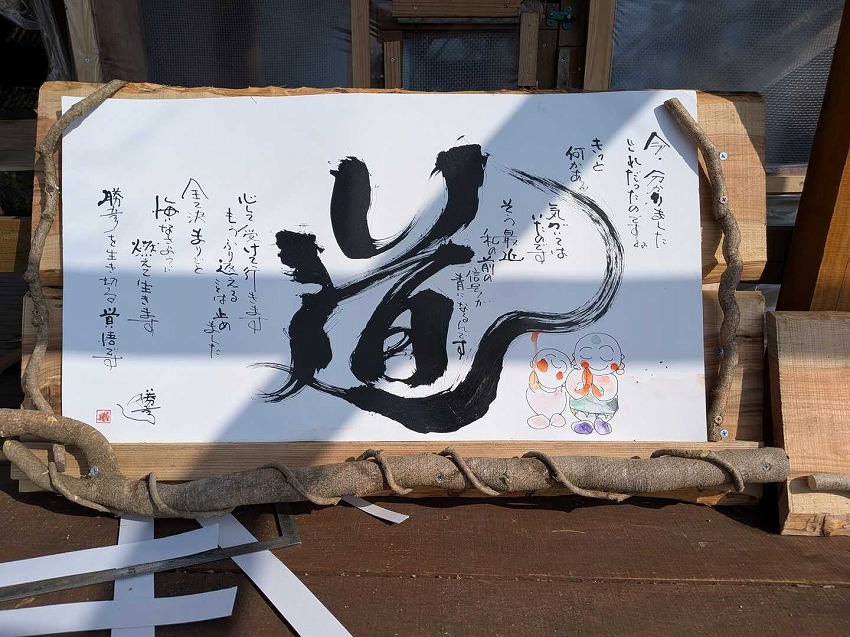 今、分かりました
これだったのですね
きっと
何かあると
気づいては
いたのです
そう最近
私の前の
信号が
青になるんです
道
心して受けて行きます
もうふり返える
ことは止め
ました
悔いなきように
燃えて生きます
勝彦を生き切る覚悟です
勝彦